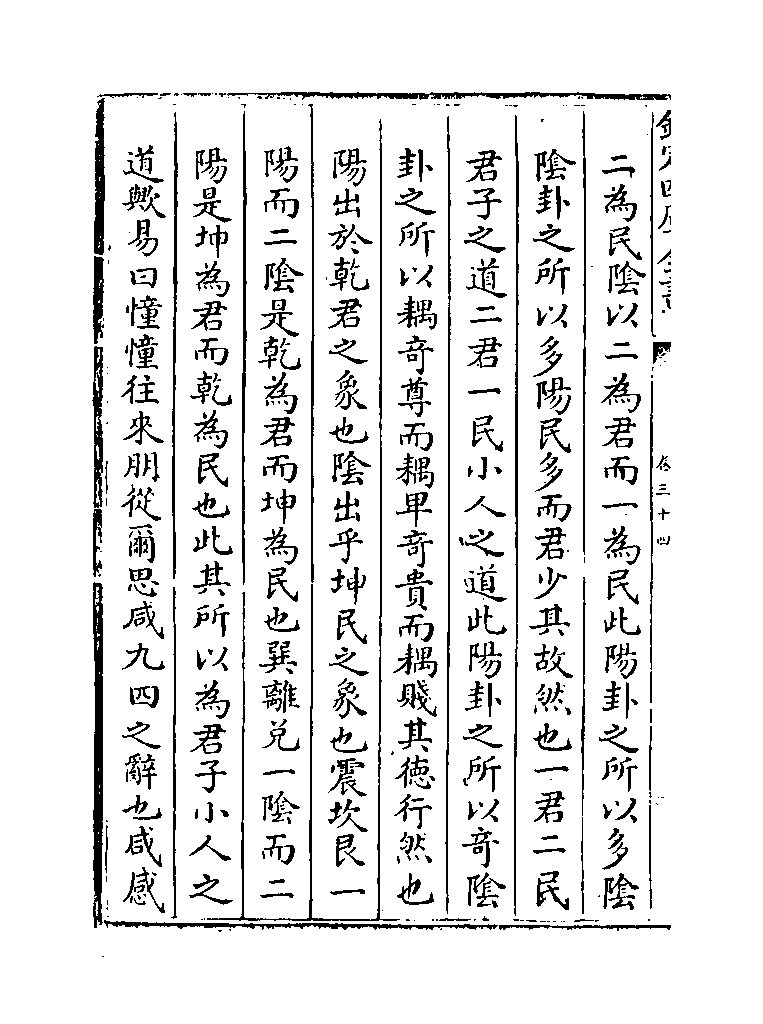 欽定四庫全書
卷三十四
二為民陰以二為君而一為民此陽卦之所以多陰
陰卦之所以多陽民多而君少其故然也一君二民
君子之道二君一民小人之道此陽卦之所以奇陰
卦之所以耦奇尊而耦卑奇貴而耦賤其德行然也
陽出於乾君之象也陰出乎坤民之象也震坎艮一
陽而二陰是乾為君而坤為民也巽離兌一陰而二
陽是坤為君而乾為民也此其所以為君子小人之
道歟易曰憧憧往來朋從爾思咸九四之辭也咸感